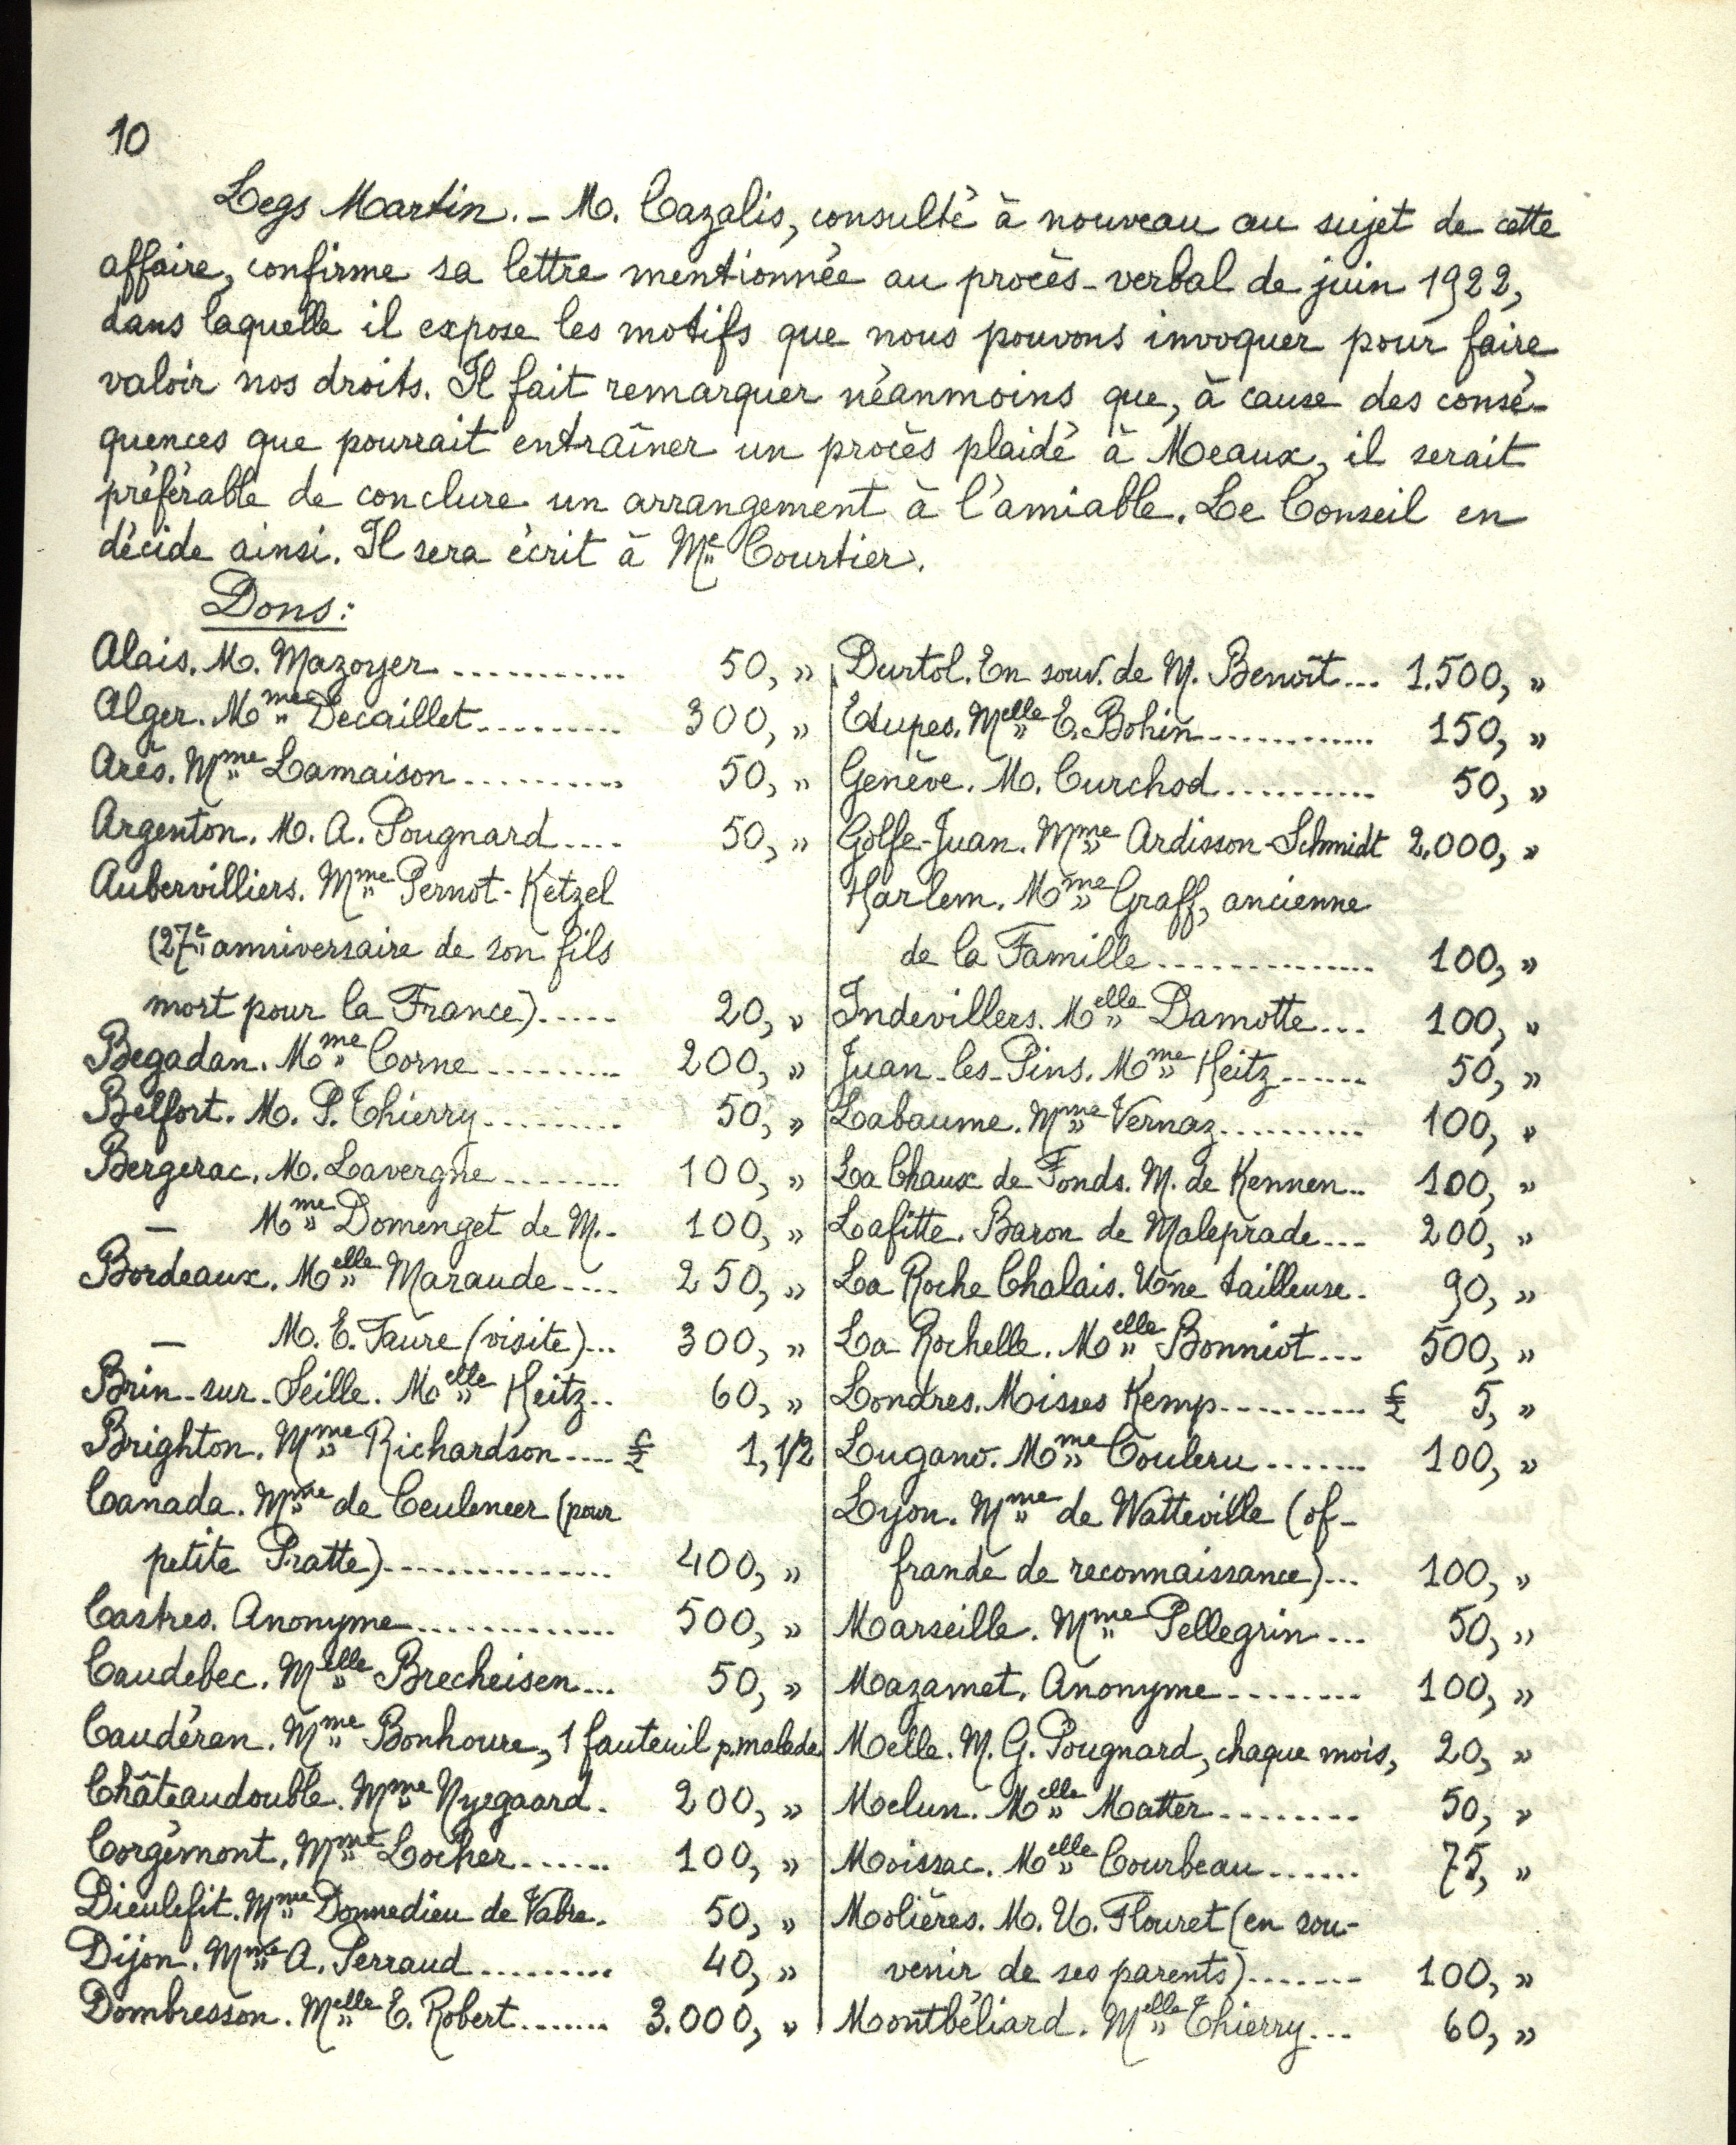 10
Legs Martin. - M. Cazalis, consulté à nouveau au sujet de cette
affaire, confirme sa lettre mentionnée au procès-verbal de juin 1922,
dans laquelle il expose les motifs que nous pouvons invoquer pour faire
valoir nos droits. Il fait remarquer néanmoins que, à cause des consé-
quences que pourrait entraîner un procès plaidé à Meaux, il serait
préférable de conclure un arrangement à l'amiable. Le Conseil en
décide ainsi. Il sera écrit à Me Courtier.
Dons:
Alais. M. Mazoyer ........... 50, »
Alger. Mme Decaillet ......... 300, »
Arès. Mme Lamaison .......... 50, »
Argenton. M. A. Pougnard .... 50, »
Aubervilliers. Mme Pernot-Ketzel
(27e anniversaire de son fils
mort pour la France) ..... 20, »
Begadan. Mme Corne ......... 200, »
Belfort. M. P. Thierry ......... 50, »
Bergerac. M. Lavergne ........ 100, »
— Mme Domenget de M. .. 100, »
Bordeaux. Melle Maraude .... 250, »
— M. E. Faure (visite) ... 300, »
Brin-sur-Seille. Melle Heitz .. 60, »
Brighton. Mme Richardson .... £ 1,1/2
Canada. Mme de Ceuleneer (pour
petite Pratte) ............... 400, »
Castres. Anonyme ............. 500, »
Caudebec. Melle Brecheisen ... 50, »
Caudéran. Mme Bonhoure, 1 fauteuil p. malade
Châteaudouble. Mme Nyegaard. 200, »
Corgémont. Mme Locher ...... 100, »
Dieulefit. Mme Donnedieu de Vabre. 50, »
Dijon. Mme A. Perraud ......... 40, »
Dombresson. Melle E. Robert ....... 3.000, »
Durtol. En souv. de M. Benoît ... 1.500, »
Etupes. Melle E. Bohin ............ 150, »
Genève. M. Curchod ........... 50, »
Golfe-Juan. Mme Ardisson-Schmidt 2.000, »
Harlem. Mme Graff, ancienne
de la Famille .............. 100, »
Indevillers. Melle Damotte ... 100, »
Juan-les-Pins. Mme Heitz ...... 50, »
Labaume. Mme Vernaz .......... 100, »
La Chaux de Fonds. M. de Kennen .. 100, »
Lafitte. Baron de Maleprade ... 200, »
La Roche Chalais. Une tailleuse. 90, »
La Rochelle. Melle Bonniot ... 500, »
Londres. Misses Kemp .......... £ 5, »
Lugano. Mme Couleru ....... 100, »
Lyon. Mme de Watteville (of-
frande de reconnaissance) ... 100, »
Marseille. Mme Pellegrin ... 50, »
Mazamet. Anonyme ........ 100, »
Melle. M. G. Pougnard, chaque mois, 20, »
Melun. Melle Matter ........ 50, »
Moissac. Melle Courbeau ...... 75, »
Molières. M. U. Flouret (en sou-
venir de ses parents) ....... 100, »
Montbéliard. Melle Thierry ... 60, »